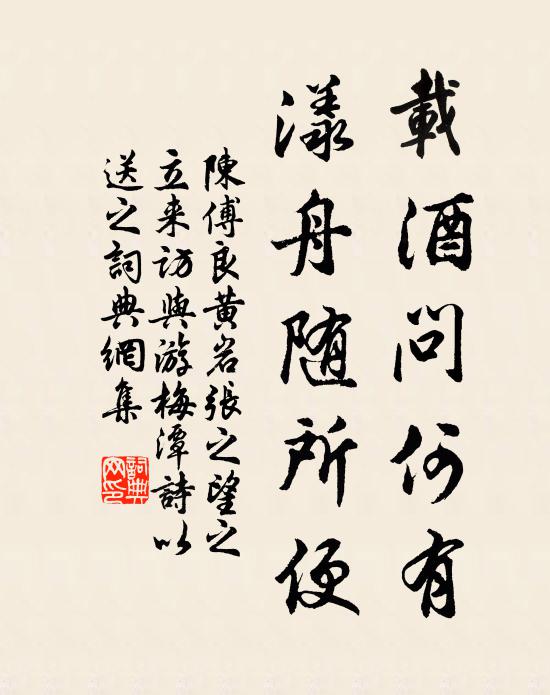 載酒問何有
漾舟随所便
陳傅良黄岩張之望之
立来訪與游梅潭詩以
送之詞典網集
詞典
网印